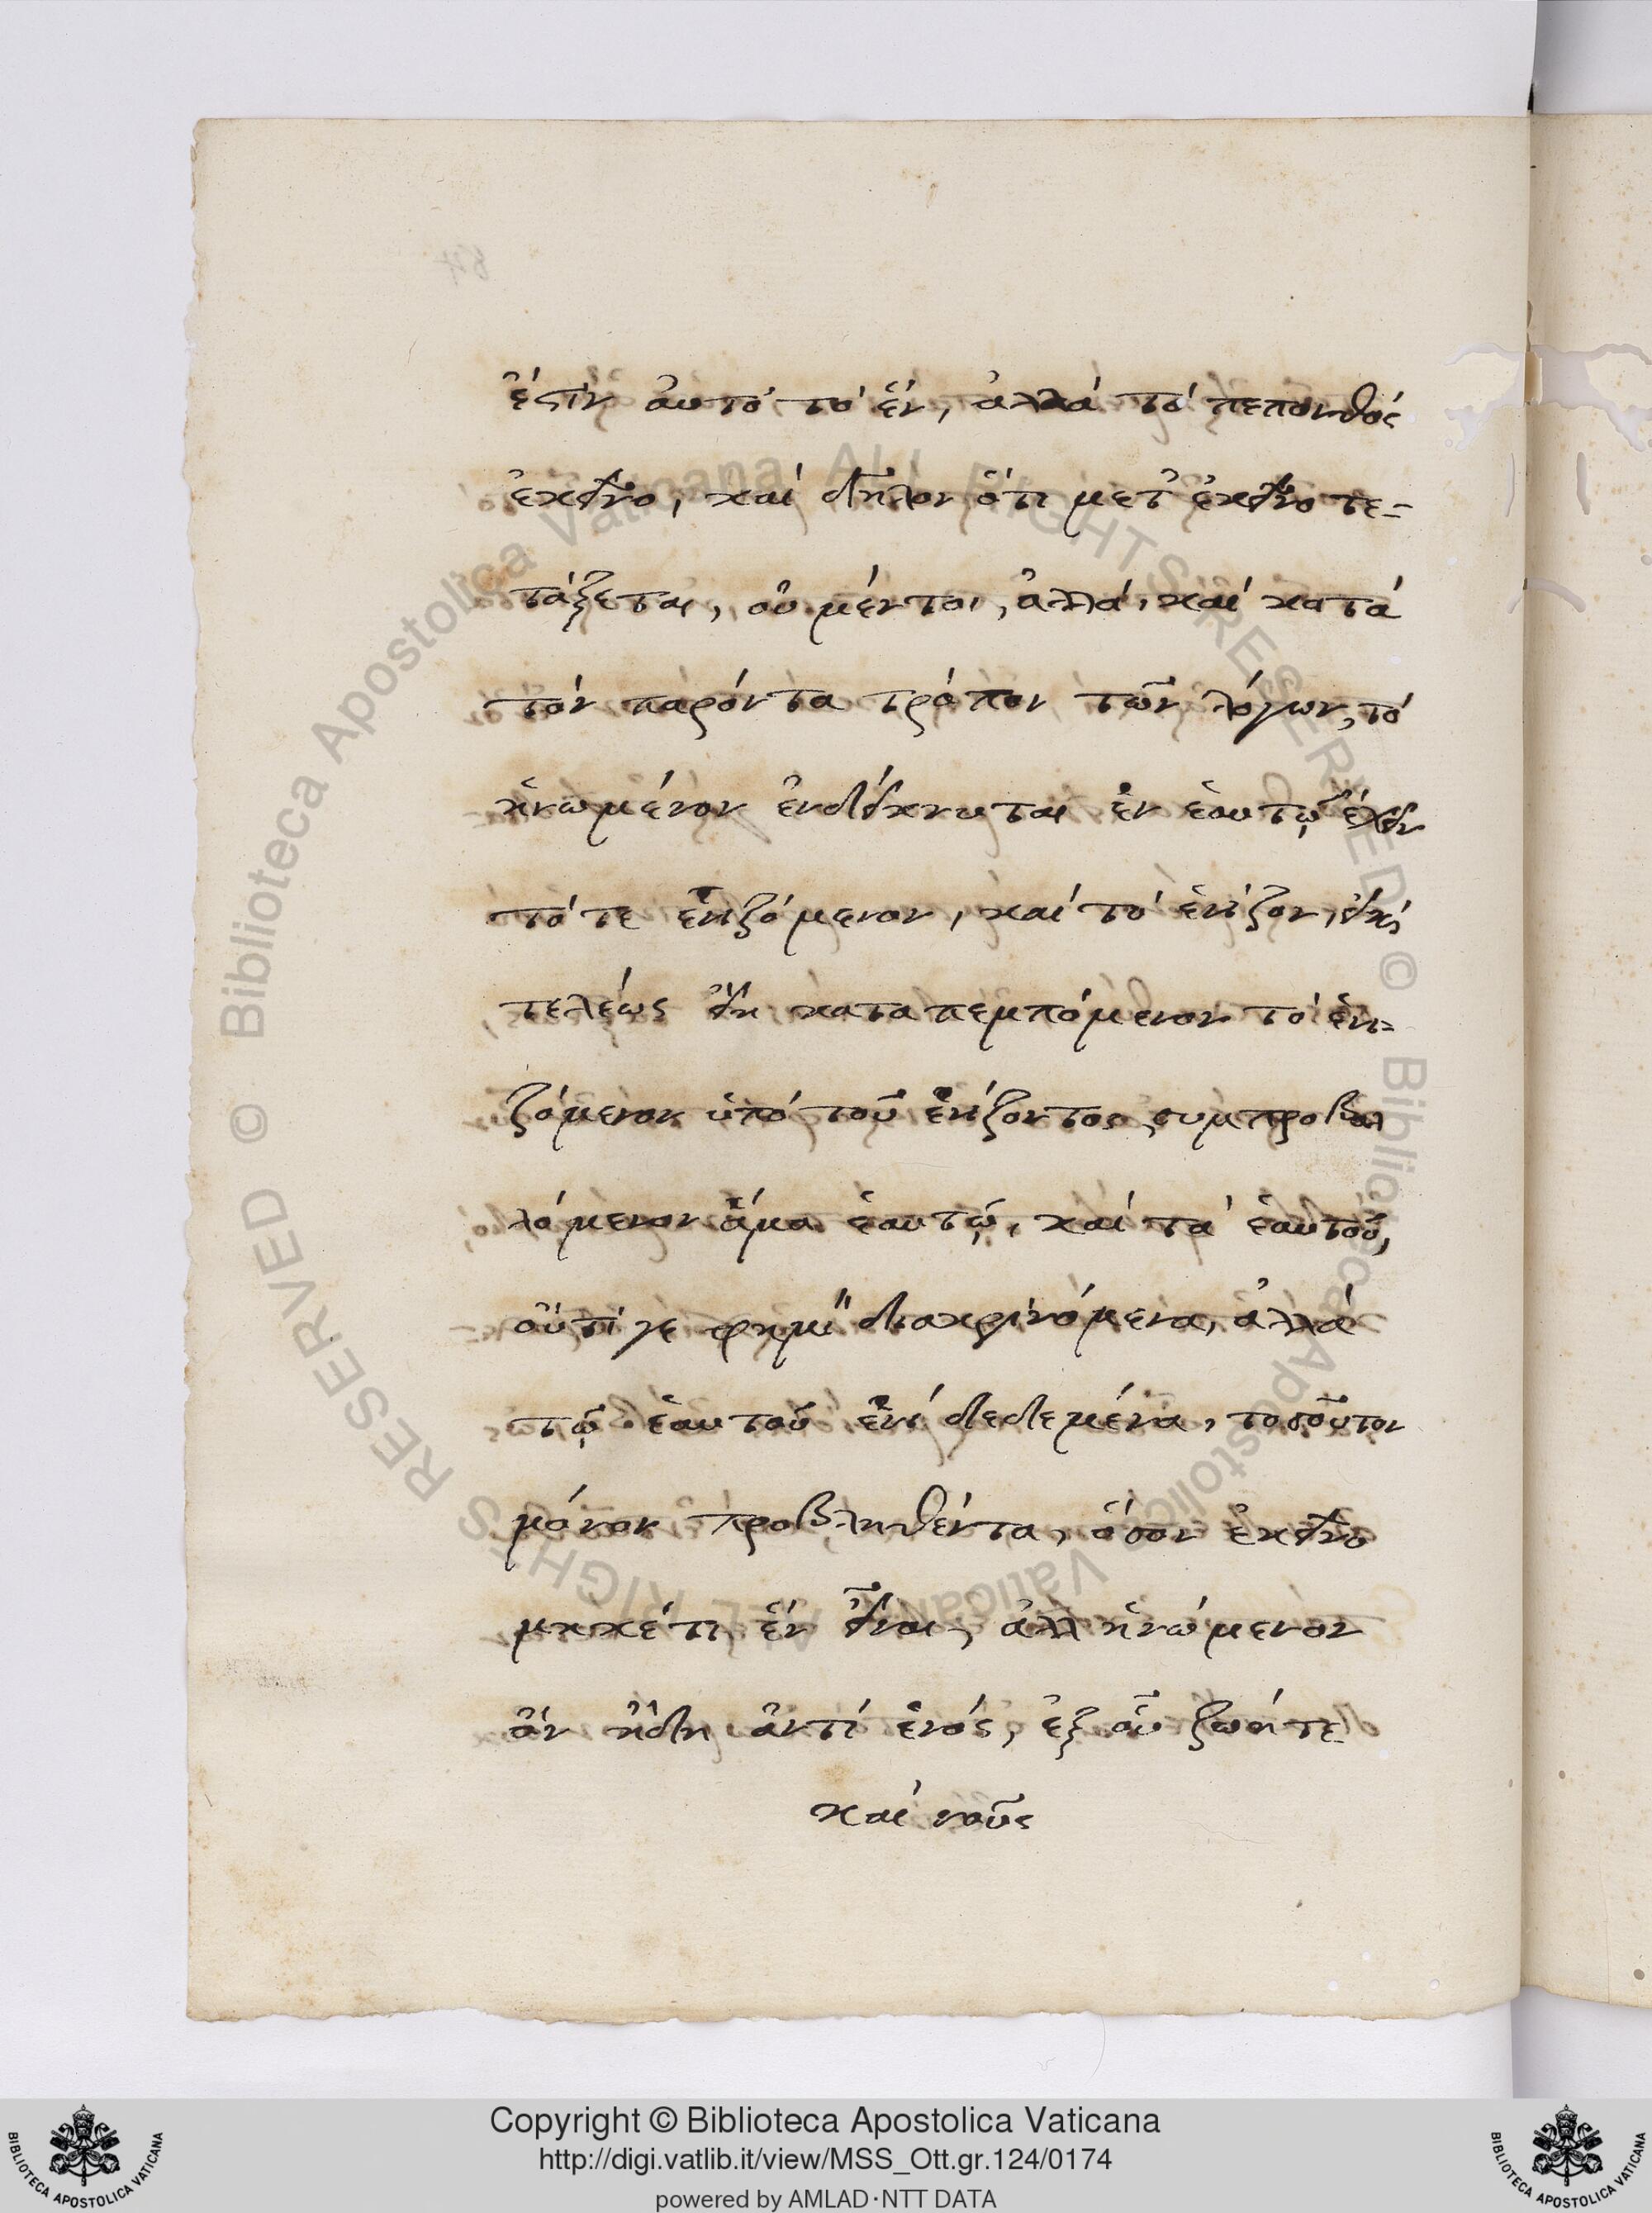 ἐστὶν αὐτὸ τὸ ἕν, ἀλλὰ τὸ πεπονθὸς
ἐκεῖνο, καὶ δῆλον ὅτι μετ' ἐκεῖνο τε-
τάξεται, οὐ μέντοι, ἀλλὰ, καὶ κατὰ
τὸν παρόντα τρόπον τῶν λόγων, τὸ
ἡνωμένον ἐνδείκνυται ἐν ἑαυτῷ ἔχειν
τό τε ἑνιζόμενον, καὶ τὸ ἑνίζον, εἰ καὶ
τελέως εἴη καταπεμπόμενον τὸ ἑνι-
ζόμενον ὑπὸ τοῦ ἑνίζοντος, συμπροβαλ
λόμενον ἅμα ἑαυτῷ, καὶ τὰ ἑαυτοῦ,
οὔτι γε φημὶ διακρινόμενα, ἀλλὰ
τῷ ἑαυτοῦ ἑνὶ δεδεμένα, τοσοῦτον
μόνον προβληθέντα, ὅσον ἐκεῖνο
μηκέτι ἓν εἶναι, ἀλλ ἡνώμενον
ἂν ἤδη ἀντὶ ἑνός, ἐξ οὗ ζωή τε
καὶ νοῦς
Copyright © Biblioteca Apostolica Vaticana
http://digi.vatlib.it/view/MSS_Ott.gr.124/0174
powered by AMLAD·NTT DATA
BIBLIOTECA APOSTOLICA VATICANA
BIBLIOTECA APOSTOLICA VATICANA
Biblioteca Apostolica Vaticana ALL RIGHTS RESERVED © Biblioteca Apostolica Vaticana ALL RIGHTS RESERVED ©